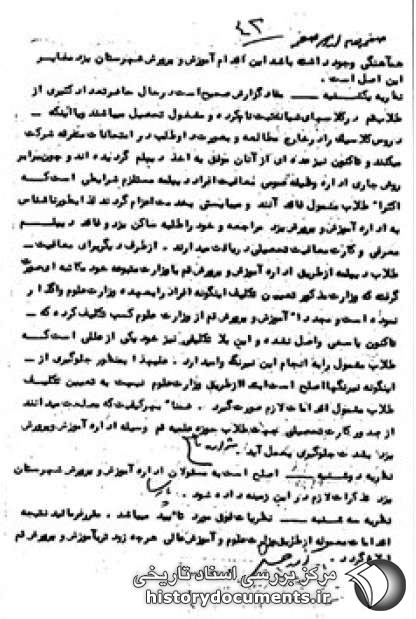 ۴۲
هماهنگی وجود داشته باشد این اقدام آموزش و پرورش شهرستان یزد مغایر
این اصل است .
نظریه یکشنبه — مفاد گزارش صحیح است درحال حاضر تعداد کثیری از
طلاب قم درکلاسهای شبانه ثبت نام کرده و مشغول تحصیل میباشند و یا اینکه —
دروس کلاسیک را در خارج مطالعه و بصورت داوطلب در امتحانات متفرقه شرکت
میکنند و تاکنون نیز عده ای از آنان موفق به اخذ دیپلم گردیده اند و چون برابر
روش جاری اداره وظیفه عمومی معافیت افراد دیپلمه مستلزم شرایطی است که
اکثرا" طلاب مشمول فاقد آنند و میبایستی بخدمت اعزام گردند لذا بطور ناشناس
به اداره آموزش و پرورش یزد مراجعه و خود را طلبه ساکن یزد و فاقد دیپلم
معرفی و کارت معافیت تحصیلی دریافت میدارند . از طرف دیگر برای معافیت —
طلاب دیپلمه از طریق اداره آموزش و پرورش قم با وزارت متبوعه خود مکاتبه ای صورت
گرفته که وزارت مذکور تعیین تکلیف اینگونه افراد را بعهده وزارت علوم واگذار
نموده است و مجددا" آموزش و پرورش قم از وزارت علوم کسب تکلیف کرده که —
تاکنون پاسخی واصل نشده و این بلا تکلیفی نیز خود یکی از عللی است که
طلاب مشمول را به انجام این نیرنگ وامیدارد . علیهذا بمنظور جلوگیری از —
اینگونه نیرنگها اصلح است ابتدا از طریق وزارت علوم نسبت به تعیین تکلیف
طلاب مشمول اقدامات لازم صورت گیرد . ضمنا" بهر کیفیت که مصلحت میدانند
از صدور کارت تحصیلی جهت طلاب حوزه علمیه قم وسیله اداره آموزش و پرورش
یزد بشدت جلوگیری بعمل آید
نظریه دوشنبه — اصلح است به مسئولان اداره آموزش و پرورش شهرستان
یزد تذکرات لازم در این زمینه داده شود .
نظریه سه شنبه — نظریات فوق مورد تائید میباشد . مقرر فرمائید نتیجه
اقدامات معموله از طریق وزارت علوم و آموزش عالی هرچه زودتر به آموزش و پرورش قم
ابلاغ گردد .
مرکز بررسی اسناد تاریخی
historydocuments.ir